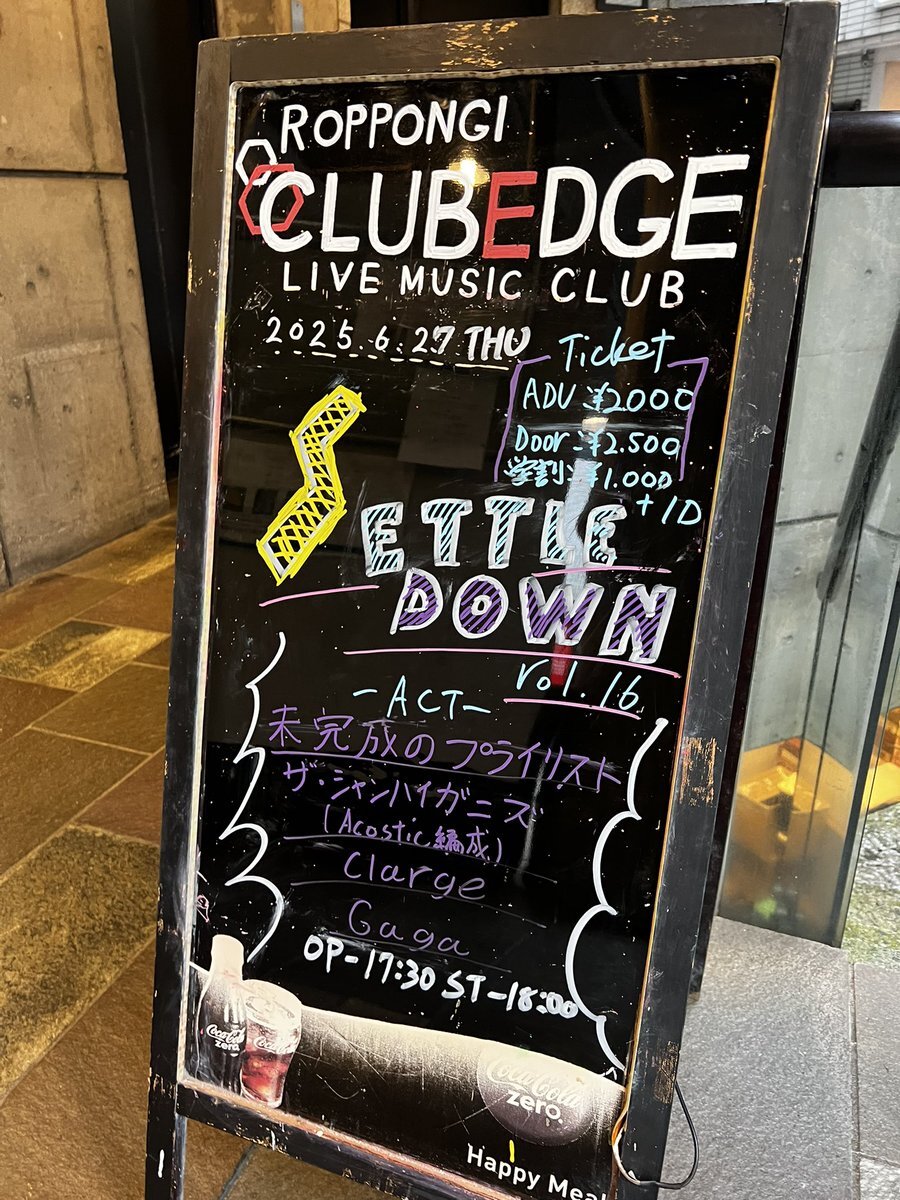 ROPPONGI
CLUBEDGE
LIVE MUSIC CLUB
2025.6.27 THU
Ticket
ADV ¥2000
Door:¥2.500
学割:¥1.000
+1D
SETTLE
DOWN
vol.16
-ACT-
未完成のプライリスト
ザ・シャンハイガニーズ
(Acostic編成)
Clarge
Gaga
OP-17:30 ST-18:00
Coca-Cola
zero
Coca-Cola
zero.
Happy Meal